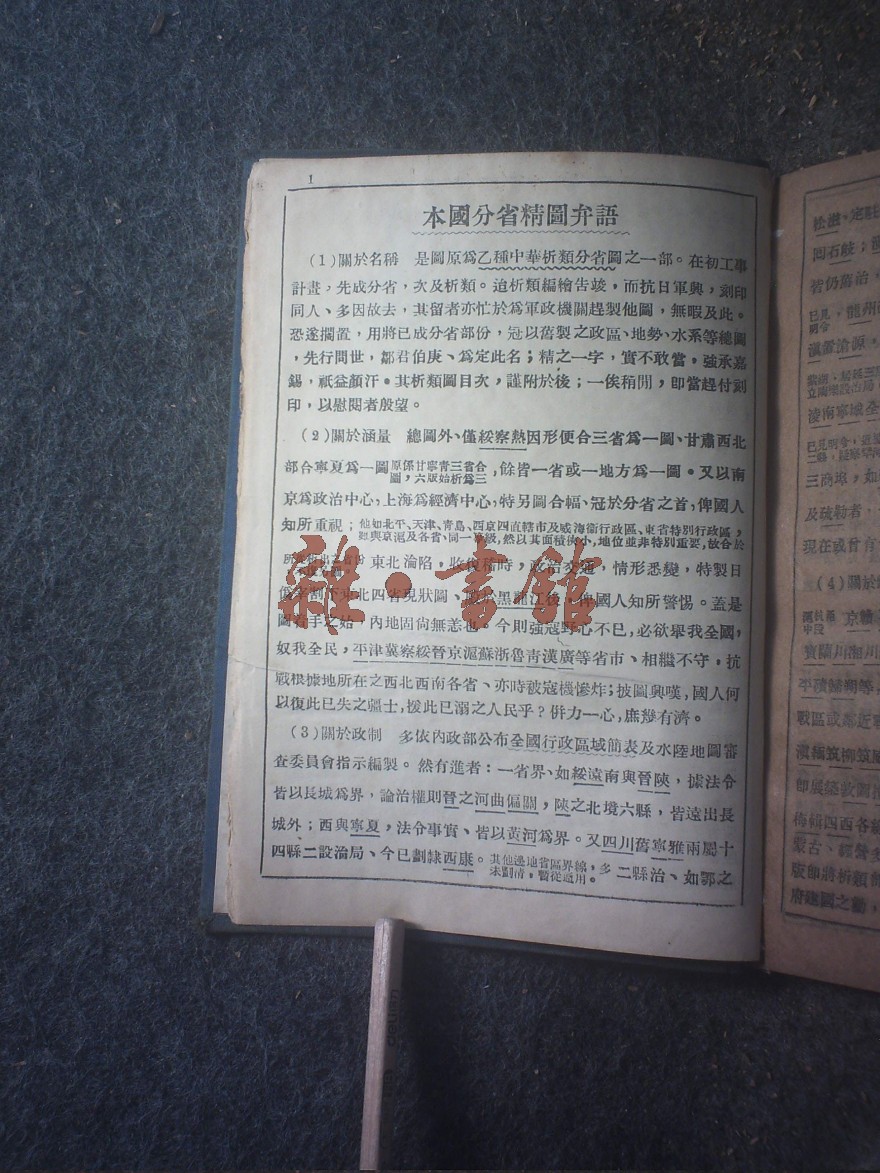 1
本國分省精圖弁語
(1)關於名稱　是圖原爲乙種中華析類分省圖之一部。在初工事
計畫，先成分省，次及析類。迨析類編繪告竣，而抗日軍興，刻印
同人、多因故去，其留者亦忙於爲軍政機關趕製他圖，無暇及此。
恐遂擱置，用將已成分省部份，冠以舊製之政區、地勢、水系等總圖
，先行問世，鄒君伯庚、爲定此名；精之一字，實不敢當，強承嘉
錫，祇益顏汗。其析類圖目次，謹附於後；一俟稍閒，即當趕付刻
印，以慰閱者殷望。
(2)關於涵量　總圖外、僅綏察熱因形便合三省爲一圖、甘肅西北
部合寧夏爲一圖原係甘寧青三省合圖，六版始析爲三，餘皆一省或一地方爲一圖。又以南
京爲政治中心，上海爲經濟中心，特另圖合幅、冠於分省之首，俾國人
知所重視；他如北平、天津、青島、西京四直轄市及威海衞行政區、東省特別行政區，雖與京滬及各省、同一等級，然以其面積狹小，地位並非特別重要，故合於
東北淪陷，收復稽時，政治交通，情形悉變，特製日
東北四省現狀圖、黑龍江後，俾國人知所警惕。蓋是
圖着手之始，內地固尙無恙也。今則強寇野心不已，必欲舉我全國，
奴我全民，平津冀察綏晉京滬蘇浙魯靑漢廣等省市、相繼不守，抗
戰根據地所在之西北西南各省、亦時被寇機慘炸；披圖興嘆，國人何
以復此已失之疆土，援此已溺之人民乎？併力一心，庶幾有濟。
(3)關於政制　多依內政部公布全國行政區域簡表及水陸地圖審
查委員會指示編製。然有進者：一省界、如綏遠南與晉陝，據法令
皆以長城爲界，論治權則晉之河曲偏關，陝之北境六縣，皆遠出長
城外；西與寧夏，法令事實、皆以黃河爲界。又四川舊寧雅兩屬十
四縣二設治局、今已劃隸西康。其他邊地省區界線，多未劃清，暫從適用。二縣治、如鄂之
雜·書館
松滋、定
皆仍舊治，
滇
三商埠，如
及疏勒者，
現在或曾有
(4)關於
京贛
寶
戰區或鄰近
府